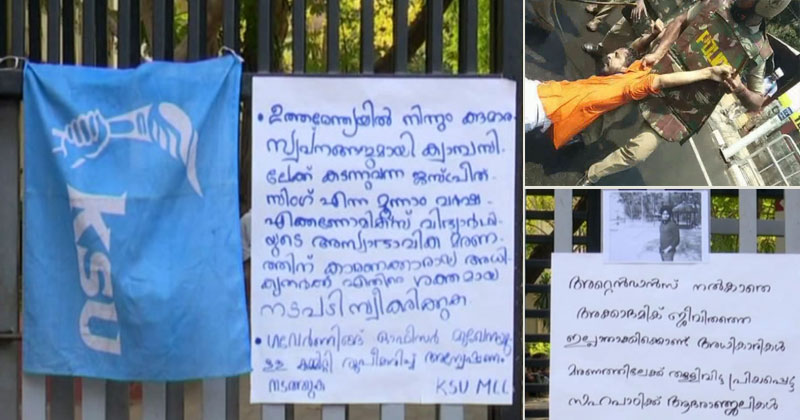 KSU
• ഉത്തരേന്ത്യയിൽ നിന്നും കൗമാര
സ്വപ്നങ്ങളുമായി ക്യാമ്പസി
ലേക്ക് കടന്നുവന്ന ജസ്പ്രീത്
സിംഗ് എന്ന മൂന്നാം വർഷ
എക്കണോമിക്സ് വിദ്യാർത്ഥി
യുടെ അസ്വാഭാവിക മരണ
ത്തിന് കാരണക്കാരായ അധി
കൃതർക്ക് എതിരെ ശക്തമായ
നടപടി സ്വീകരിക്കുക
• ഗവേർണിങ്ങ് ഓഫീസർ
ഉള്ള കമ്മിറ്റി രൂപീകരിച്ച് അന്വേഷണം
നടത്തുക KSU MCC
POLICE
അറ്റെൻഡാൻസ് നൽകാതെ
അക്കാദമിക് ജീവിതത്തെ
ഇല്ലാതാക്കിക്കൊണ്ട് അധികാരികൾ
മരണത്തിലേക്ക് തള്ളിവിട്ട പ്രിയപ്പെട്ട
സഹപാഠിക്ക് ആദരാഞ്ജലികൾ